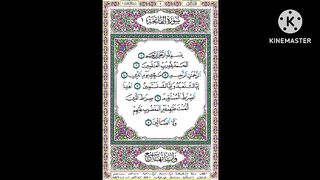 سُورَةُ الْفَاتِحَةِ
بِسْمِ اللَّهِ الرَّحْمَٰنِ الرَّحِيمِ
الْحَمْدُ لِلَّهِ رَبِّ الْعَالَمِينَ
الرَّحْمَٰنِ الرَّحِيمِ مَالِكِ يَوْمِ الدِّينِ
إِيَّاكَ نَعْبُدُ وَإِيَّاكَ نَسْتَعِينُ اهْدِنَا
الصِّرَاطَ الْمُسْتَقِيمَ صِرَاطَ الَّذِينَ
أَنْعَمْتَ عَلَيْهِمْ غَيْرِ الْمَغْضُوبِ عَلَيْهِمْ
وَلَا الضَّالِّينَ
KINEMASTER